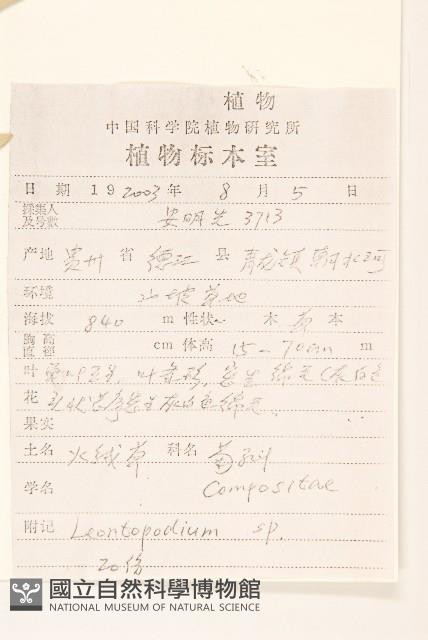 植物
中国科学院植物研究所
植物标本室
日期 19 2003 年 8 月 5 日
採集人及号数 安明先 3713
产地 贵州 省 德江 县 青龙镇 朝水河
环境 山坡草地
海拔 840 m 性状 木 草 本
胸高直径 cm 体高 15-70cm m
叶
花 头状花序
果实
土名 火绒草 科名 菊科
学名 Compositae
附记 Leontopodium sp.
20份
國立自然科學博物館
NATIONAL MUSEUM OF NATURAL SCIENCE